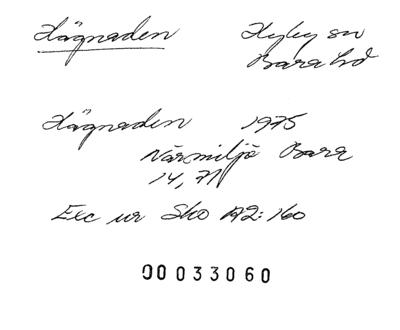 Hägnaden Hyby sn
Bara hd
Hägnaden 1975
Närmiljö Bara
14, 71
Exc ur Sko A2:160
00033060